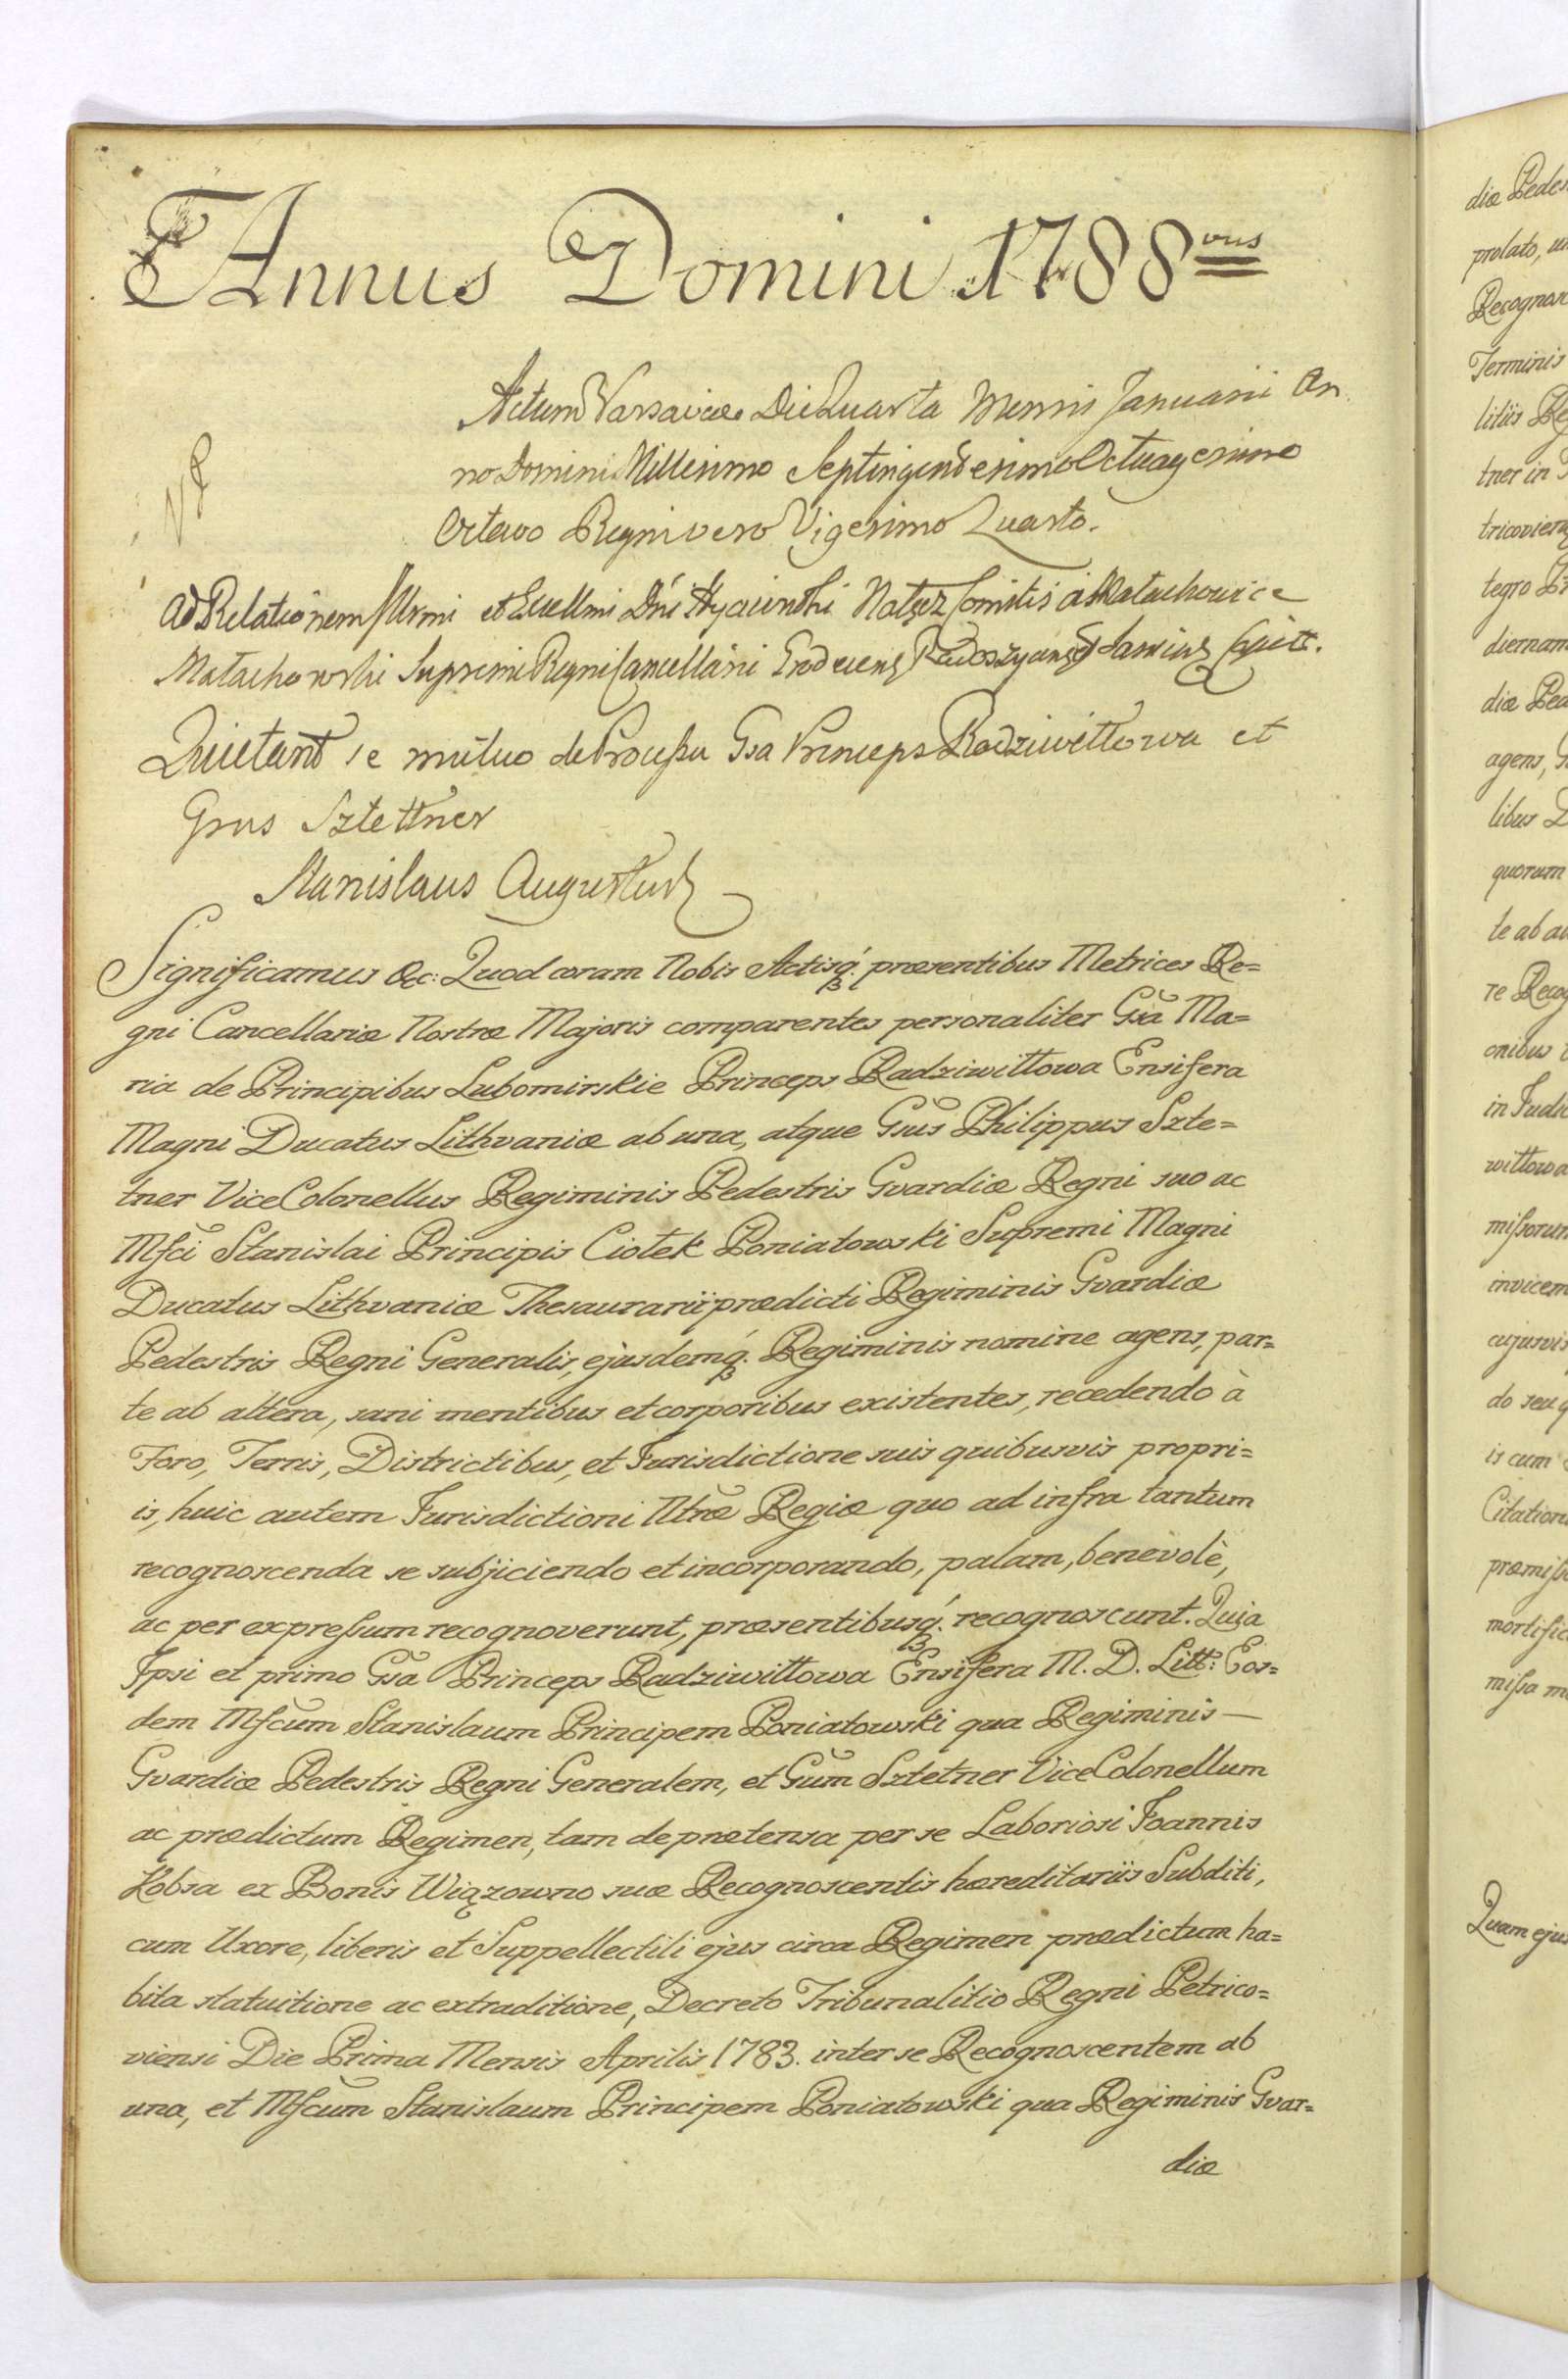 Annus Domini 1788vus
Actum Varsaviae Die Quarta Mensis Januarii An
no Domini Millesimo Septingentesimo Octuagesimo
Octavo Regni vero Vigesimo Quarto.
Ad Relationem Illrmi et Excellmi Dni Hyacinthi Nałęz Comitis a Małachowice
Małachowski Supremi Regni Cancellarii
Quietant se mutuo de Processu Gsa Princeps Radziwiłłowa et
Gsus Sztettner
Stanislaus Augustus
Significamus &c: Quod coram Nobis Actisq. præsentibus Metrices Re=
gni Cancellariæ Nostræ Majoris comparentes personaliter Gsa Ma=
ria de Principibus Lubomirskie Princeps Radziwiłłowa Ensifera
Magni Ducatus Lithvaniæ ab una, atque Gsus Philippus Szte=
tner ViceColonellus Regiminis Pedestris Gvardiæ Regni suo ac
Mfci Stanislai Principis Ciołek Poniatowski Supremi Magni
Ducatus Lithvaniæ Thesaurarii prædicti Regiminis Gvardiæ
Pedestris Regni Generalis, ejusdemq. Regiminis nomine agens, par=
te ab altera, sani mentibus et corporibus existentes, recedendo à
Foro, Terris, Districtibus, et Jurisdictione suis quibusvis propri=
is, huic autem Jurisdictioni Ntræ Regiæ quo ad infra tantum
recognoscenda se subjiciendo et incorporando, palam, benevolè,
ac per expressum recognoverunt, præsentibusq. recognoscunt. Quia
Ipsi et primo Gsa Princeps Radziwiłłowa Ensifera M. D. Litt: Eos=
dem Mfcum Stanislaum Principem Poniatowski qua Regiminis —
Gvardiæ Pedestris Regni Generalem, et Gsum Sztetner ViceColonellum
ac prædictum Regimen, tam de prætensa per se Laboriosi Joannis
Kobsa ex Bonis Wiązowno suæ Recognoscentis hæreditariis Subditi,
cum Uxore, liberis et Suppellectili ejus circa Regimen prædictum ha=
bita statuitione ac extraditione, Decreto Tribunalitio Regni Petrico=
viensi Die Prima Mensis Aprilis 1783. inter se Recognoscentem ab
una, et Mfcum Stanislaum Principem Poniatowski qua Regiminis Gvar=
diæ